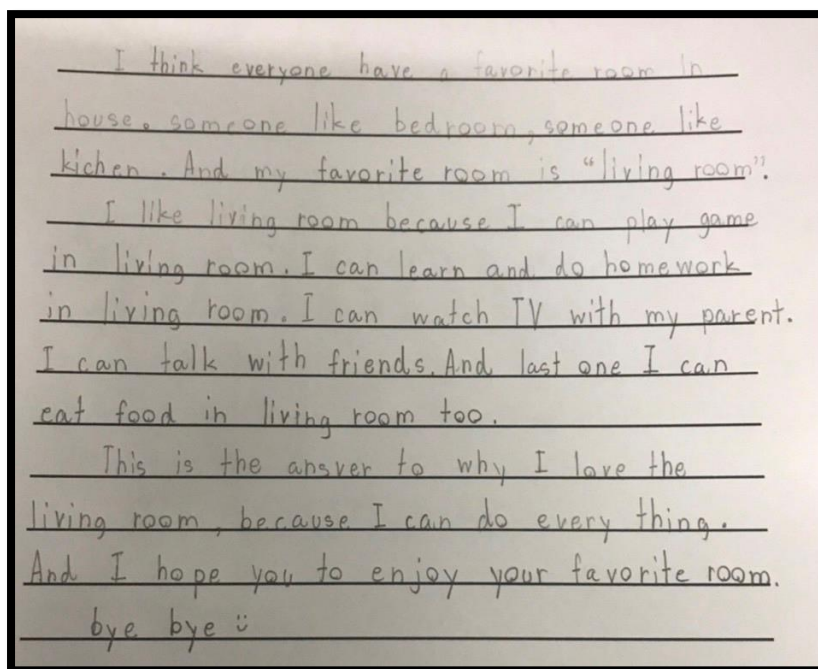 I think everyone have a favorite room in
house. someone like bedroom, someone like
kichen. And my favorite room is "living room".
I like living room because I can play game
in living room. I can learn and do homework
in living room. I can watch TV with my parent.
I can talk with friends. And last one I can
eat food in living room too.
This is the answer to why I love the
living room, because I can do every thing.
And I hope you to enjoy your favorite room.
bye bye ü